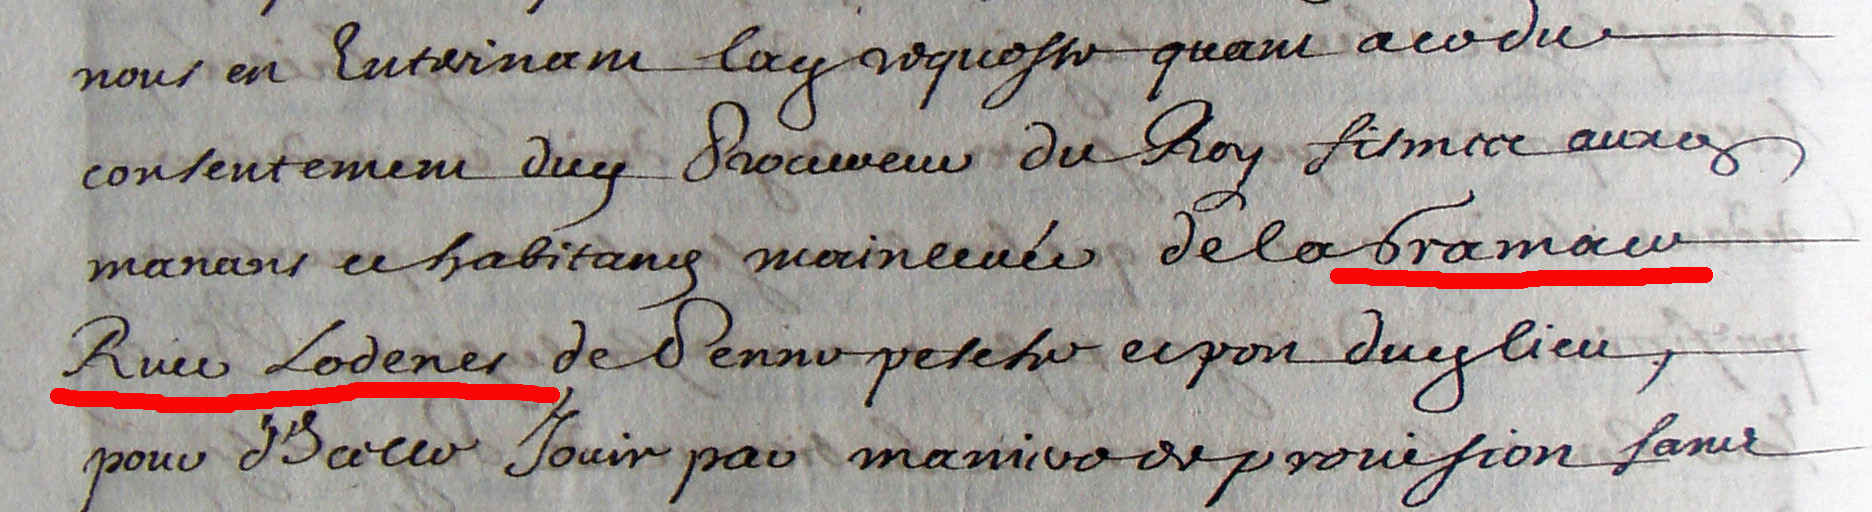 nous en Enterinant lad requeste quant a ce du
consentement dud Procureur du Roy fismes ausd
manans et habitans mainlevée de la Pramaie
Rive Lodenes de Pennepesche et port dud lieu,
pour d'Icelle Jouir par maniere de provision sans